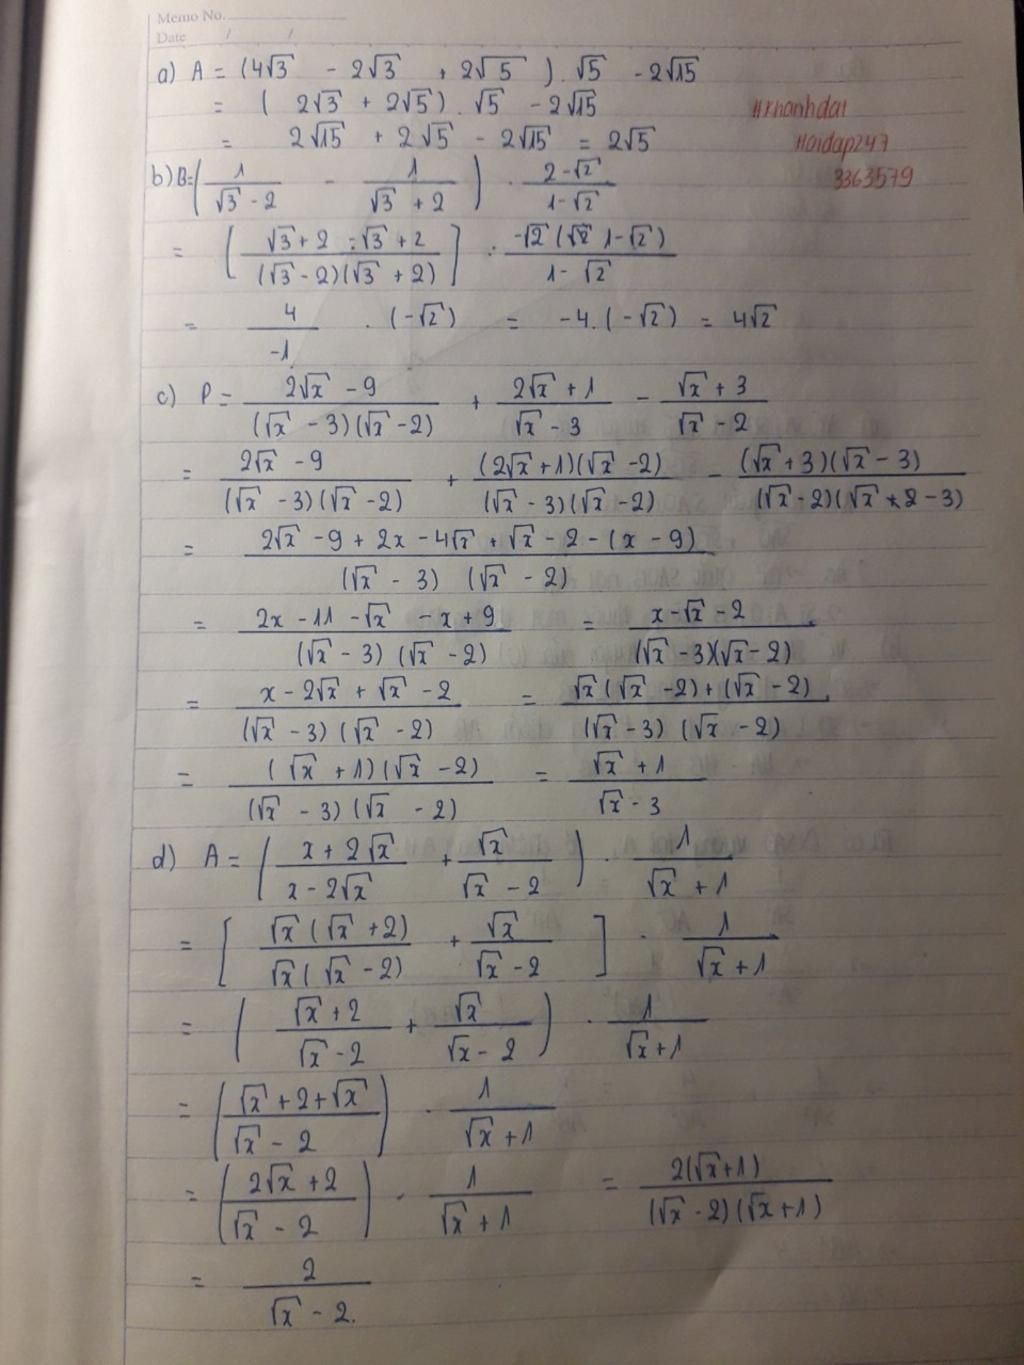 Memo No.
Date / /
a) A = (4√3 - 2√3 + 2√5) . √5 - 2√15
= ( 2√3 + 2√5) . √5 - 2√15
#Khanhdat
= 2√15 + 2√5 - 2√15 = 2√5
Hoidap247
3363579
b) B = (1/(√3 - 2) - 1/(√3 + 2)) . (2-√2)/(1-√2)
= [(√3+2 -√3+2)/((√3-2)(√3+2))] . (-√2(1-√2))/(1-√2)
= 4/-1 . (-√2) = -4.(-√2) = 4√2
c) P = (2√x - 9)/((√x - 3)(√x - 2)) + (2√x + 1)/(√x - 3) - (√x + 3)/(√x - 2)
= (2√x - 9)/((√x - 3)(√x - 2)) + ((2√x+1)(√x-2))/((√x - 3)(√x - 2)) - ((√x+3)(√x-3))/((√x-2)(√x-3))
= (2√x - 9 + 2x - 4√x + √x - 2 - (x - 9))/((√x - 3)(√x - 2))
= (2x - 11 - √x - x + 9)/((√x - 3)(√x - 2)) = (x-√x-2)/((√x-3)(√x-2))
= (x - 2√x + √x - 2)/((√x - 3)(√x - 2)) = (√x(√x-2)+(√x-2))/((√x-3)(√x-2))
= ((√x+1)(√x-2))/((√x - 3)(√x - 2)) = (√x+1)/(√x-3)
d) A = ((x + 2√x)/(x - 2√x) + √x/(√x - 2)) . 1/(√x + 1)
= [(√x(√x+2))/(√x(√x-2)) + √x/(√x-2)] . 1/(√x+1)
= ((√x+2)/(√x-2) + √x/(√x-2)) . 1/(√x+1)
= ((√x+2+√x)/(√x-2)) . 1/(√x+1)
= ((2√x+2)/(√x-2)) . 1/(√x+1) = (2(√x+1))/((√x-2)(√x+1))
= 2/(√x-2).